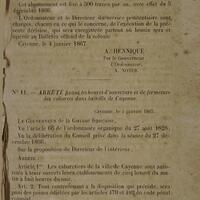 Cet abonnement est fixé à 300 francs par an, avec effet du 5
décembre 1866.
L'Ordonnateur et le Directeur des services pénitentiaires sont
chargés, chacun en ce qui le concerne, de l'exécution de la présente
décision, qui sera enregistrée partout où besoin sera et
insérée au Bulletin officiel de la colonie.
Cayenne, le 4 janvier 1867.
A. HENNIQUE
Par le Gouverneur :
L'Ordonnateur,
N° 11. — ARRÊTÉ fixant les heures d'ouverture et de fermeture
des cabarets dans la ville de Cayenne.
Cayenne, le 5 janvier 1867.
LE GOUVERNEUR de la Guyane française,
Vu l'article 66 de l'ordonnance organique du 27 août 1828,
Vu la délibération du Conseil privé dans la séance du 27
décembre 1866,
Sur la proposition du Directeur de l'intérieur,
ARRÊTE :
Article 1er. Les cabaretiers de la ville de Cayenne sont autorisés
à tenir ouverts leurs établissements de cinq heures du matin
à huit heures du soir.
Art. 2. Tout contrevenant à la disposition qui précède, sera
puni des peines édictées par les articles 479 et 482 du code pénal